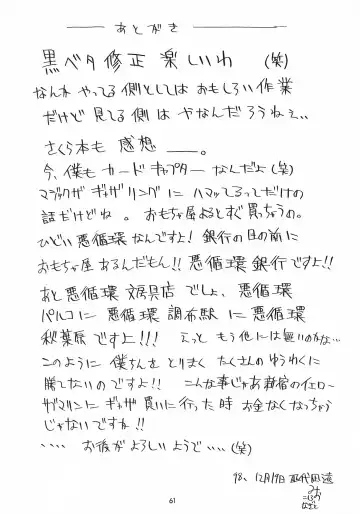 あとがき
黒ベタ修正 楽しいわ (笑)
なんか やってる側としては おもしろい作業
だけど 見てる側 は やなんだろうねぇ..
さくら本も 感想 ――。
今、僕も カードキャプター なんだよ(笑)
マジックザ ギャザリング に ハマッてるってだけの
話だけどね 。 おもちゃ屋よるとすぐ買っちうの。
ひどい 悪循環 なんですよ! 銀行の目の前に
おもちゃ屋 あるんだもん!! 悪循環 銀行ですよ!!
あと 悪循環 文房具店 でしょ、悪循環
パルコに 悪循環 調布駅 に 悪循環
秋葉原 ですよ!!! えっと もう他には無いのかな…
このように 僕らを とりまく たくさんの ゆうわくに
勝てないのですよ!! こんな事じゃあ 新宿の イエロー
サブマリンに ギャザ 買いに行った時 お金なくなっちゃう
じゃないですか!!
・・・・ お後がよろしいようで・・・・(笑)
98、12月19日
61